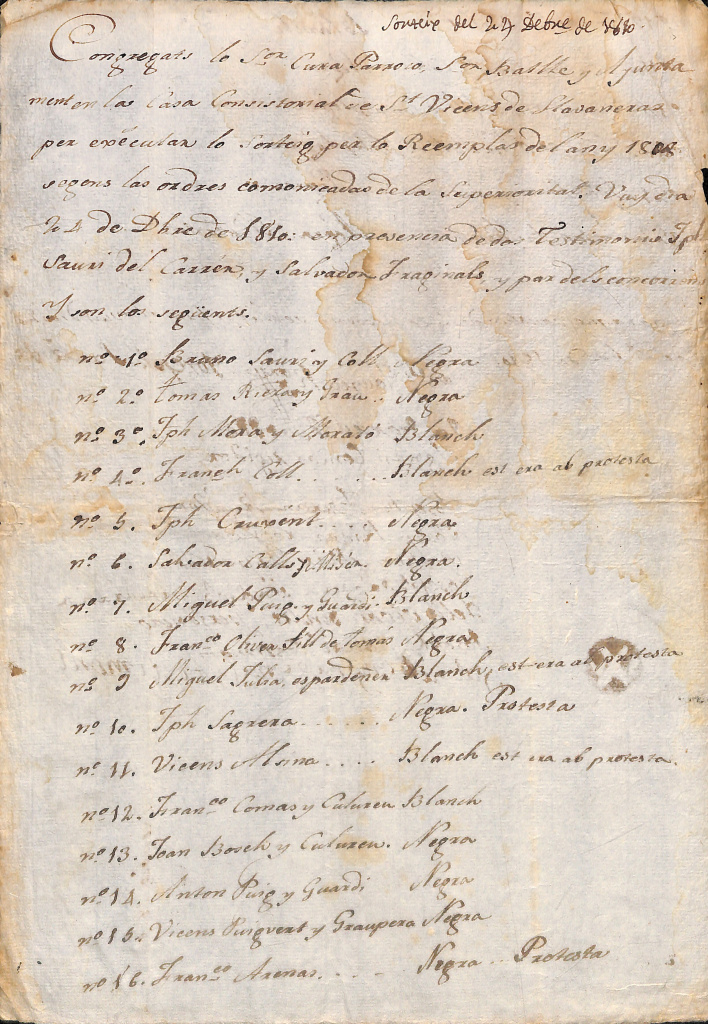 Sorteix del 24 Debre de 1810.
Congregats lo Sor Cura Parroco, Sor Batlle y Ajunta
ment en las Casa Consistorial de St Vicens de Llavaneras
per executar lo Sorteig per lo Reemplas del any 1808
segons las ordres comonicadas de la Superioritat. Vuy dia
24 de Dbre de 1810: en presencia de dos Testimonis Jph
Sauri del Carrer, y Salvador Fraginals, y par dels concorrens
Y son los següents.
no. 1o Bruno Sauri y Coll Negra
no. 2o Tomas Riera y Grau.. Negra
no. 3o. Jph Mora y Morató Blanch
no. 4o. Franch Coll..... Blanch est era ab protesta
no. 5. Jph Crupent.... Negra
no. 6. Salvador Calls y Negra.
no. 7. Miguel Puig y Guardi. Blanch
no. 8. Franco Oliver fill de Tomas Negra
no. 9 Miguel Julia, espardeñer Blanch, est era ab protesta
no. 10. Jph Sagrera...... Negra. Protesta
no. 11. Vicens Alsina.... Blanch est era ab protesta.
no. 12. Franco Comas y Culureu Blanch
no. 13. Joan Bosch y Culureu. Negra
no. 14. Anton Puig y Guardi Negra
no. 15. Vicens Puigvert y Graupera Negra
no. 16. Franco Arenas.... Negra.. Protesta